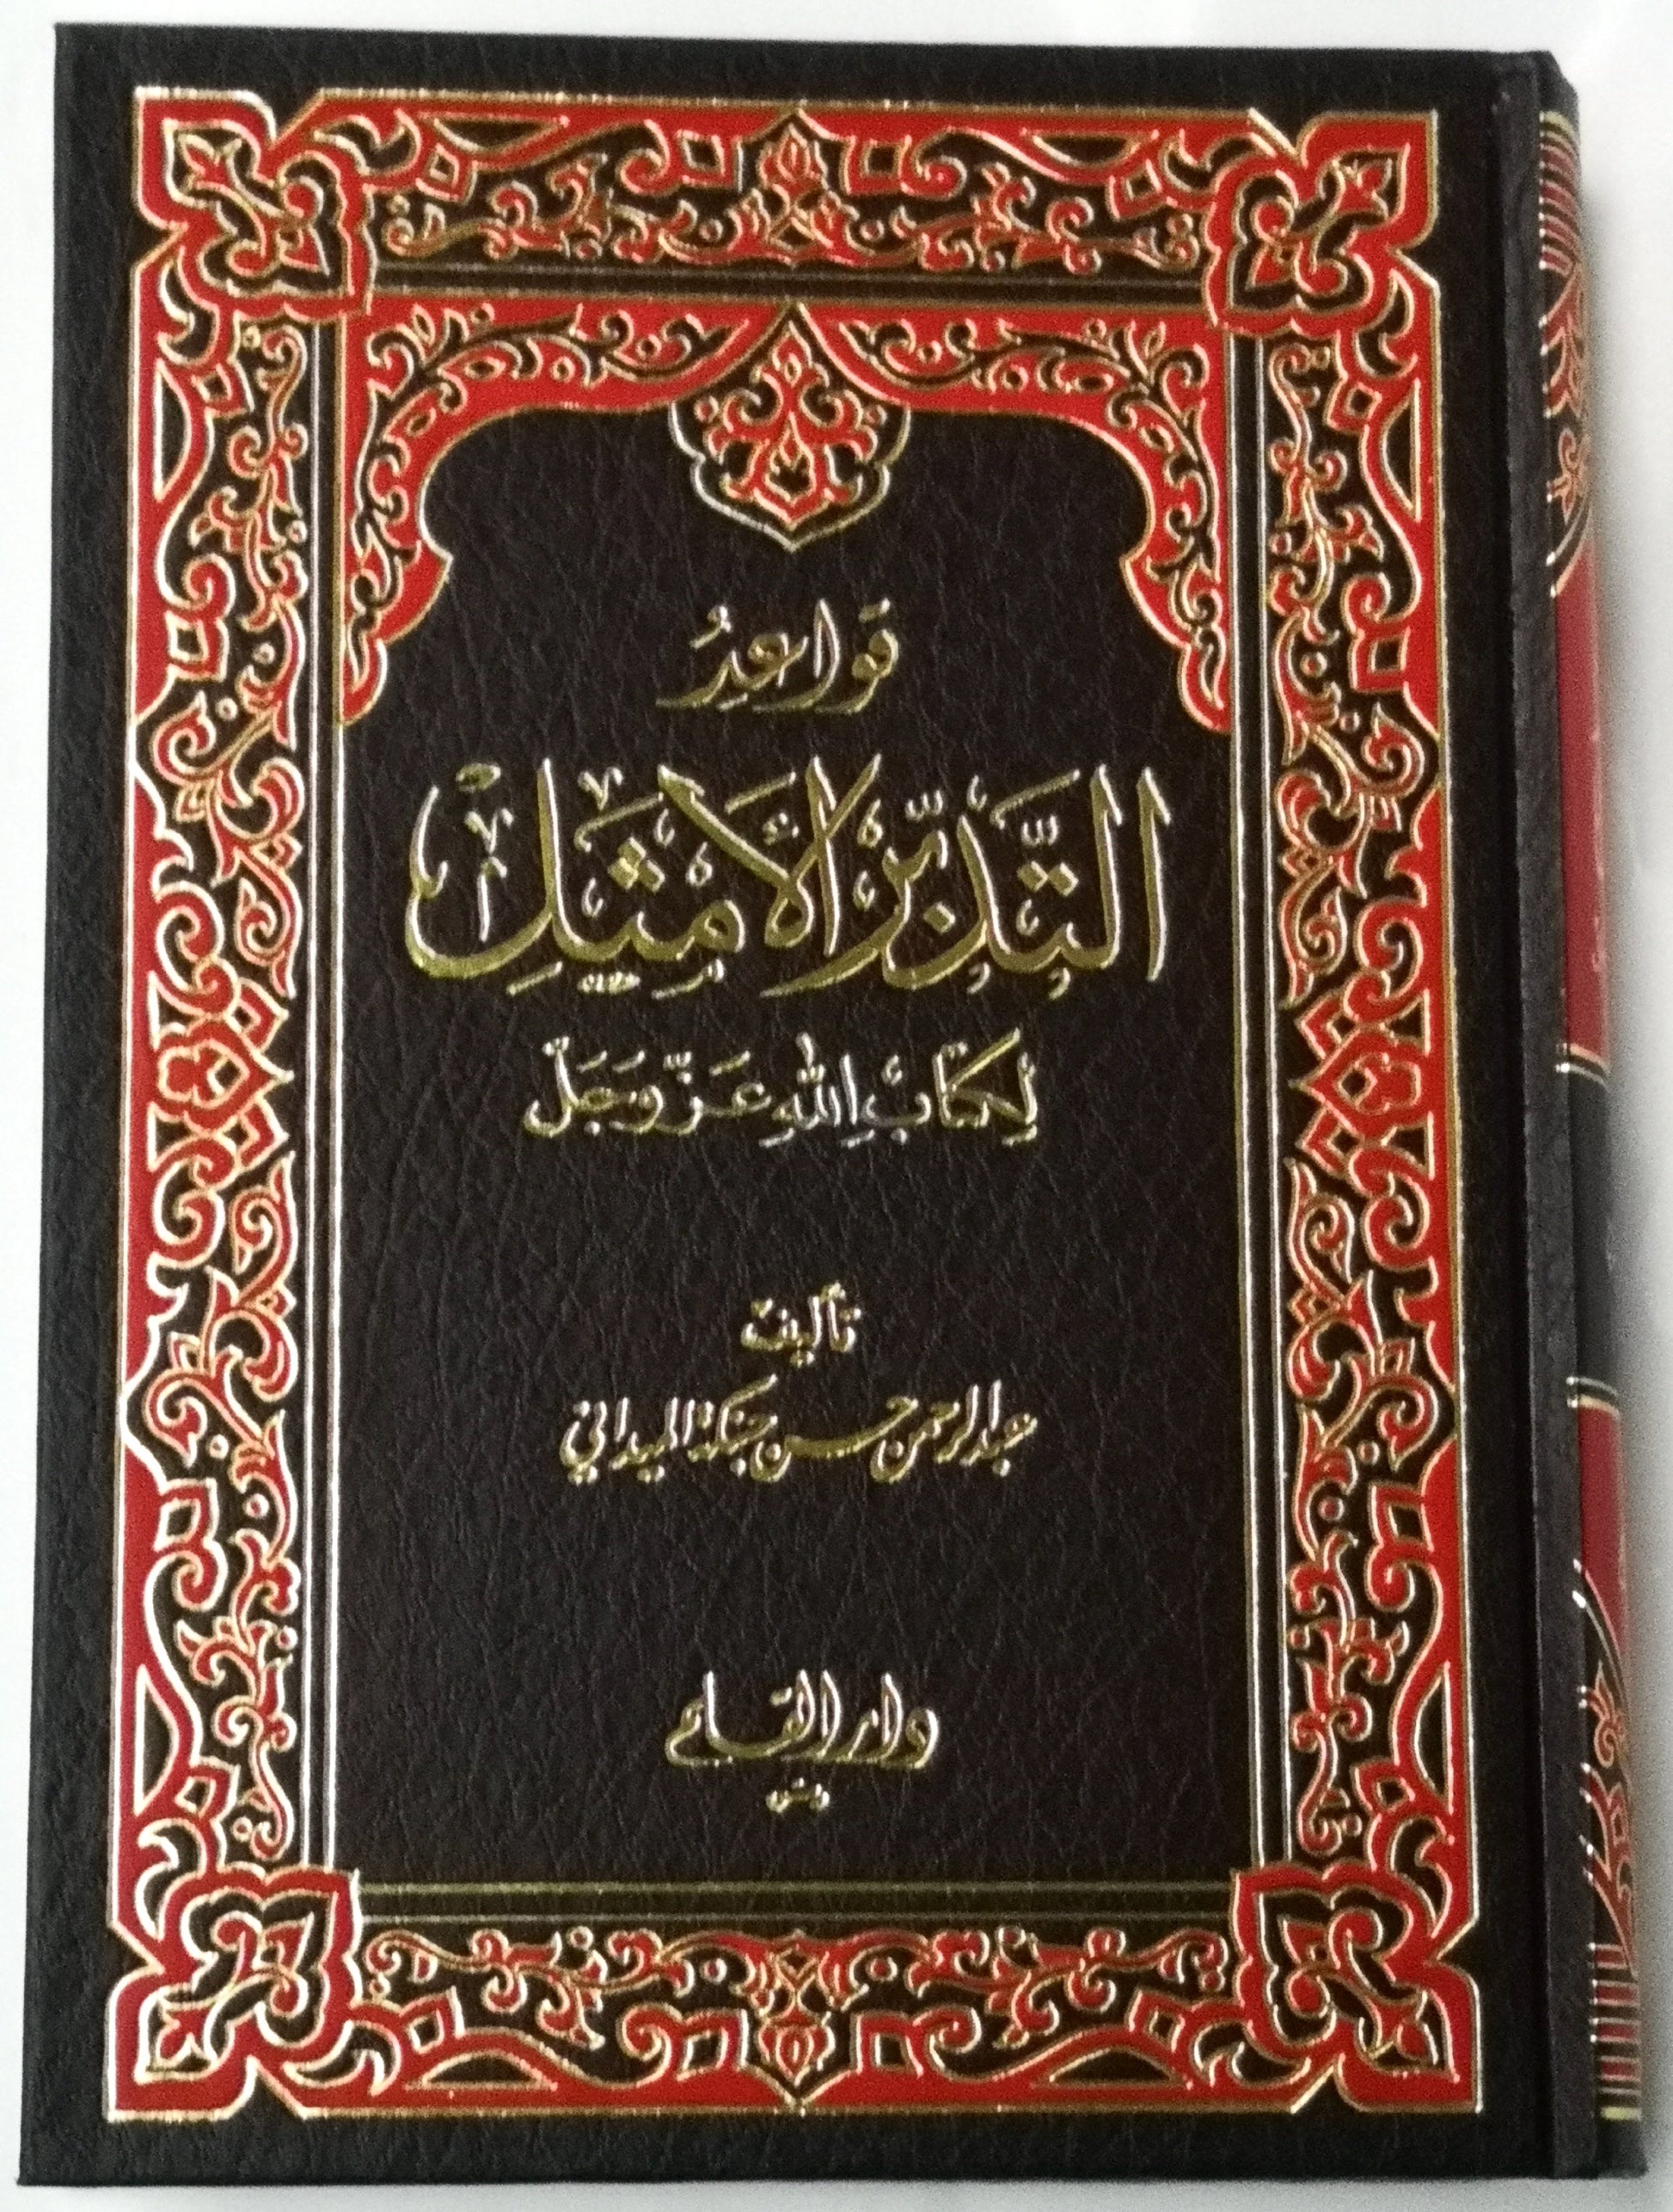 قواعِدُ
التَّدبُّر الأمثَلِ
لِكتَابِ اللهِ عَزّ وَجَلّ
تأليف
عبد الرحمن حسن حبنكة الميداني
دار القلم
دمشق